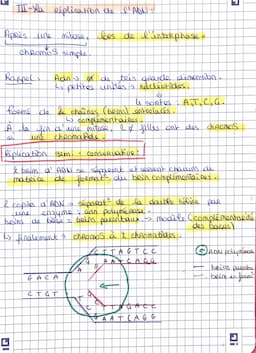 III - La réplication de l'ADN.
Après une mitose, lors de l'interphase
chromoS simple.
Rappel : ADN → de très grande dimension.
↳ petites unités → nucléotides.
↳ 4 sortes : A, T, C, G.
formé de 2 chaînes (brins)
↳ complémentaires.
A la fin d'une mitose, 2 filles ont des chromoS
à une chromatide.
Réplication semi-conservative :
2 brins d'ADN se séparent et servent chacun de
matrice de format° du brin complémentaire.
2 copies d'ADN → séparat° de la double hélice par
une enzyme : ADN polymérase.
brins de base = brins parentaux → modèle (complémentarité
des bases)
↳ finalement → chromoS à 2 chromatides.
ADN polymérase
GACA
CTGT